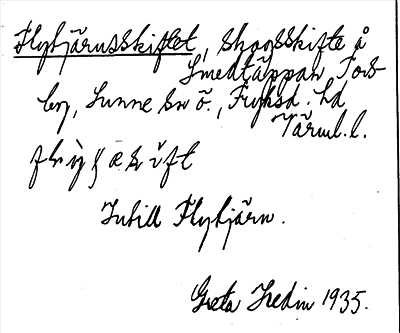 Flytjärnsskiftet, skogsskifte å
Smedtäppan, Tors
by, Sunne sn ö., Fryksd. hd
Värml. l.
Intill Flytjärn.
Greta Hedin 1935.